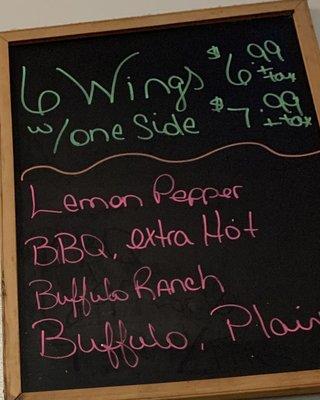 6 Wings $6.99 + tax
w/one Side $7.99 + tax
Lemon Pepper
BBQ, extra Hot
Buffulo Ranch
Buffulo, Plain